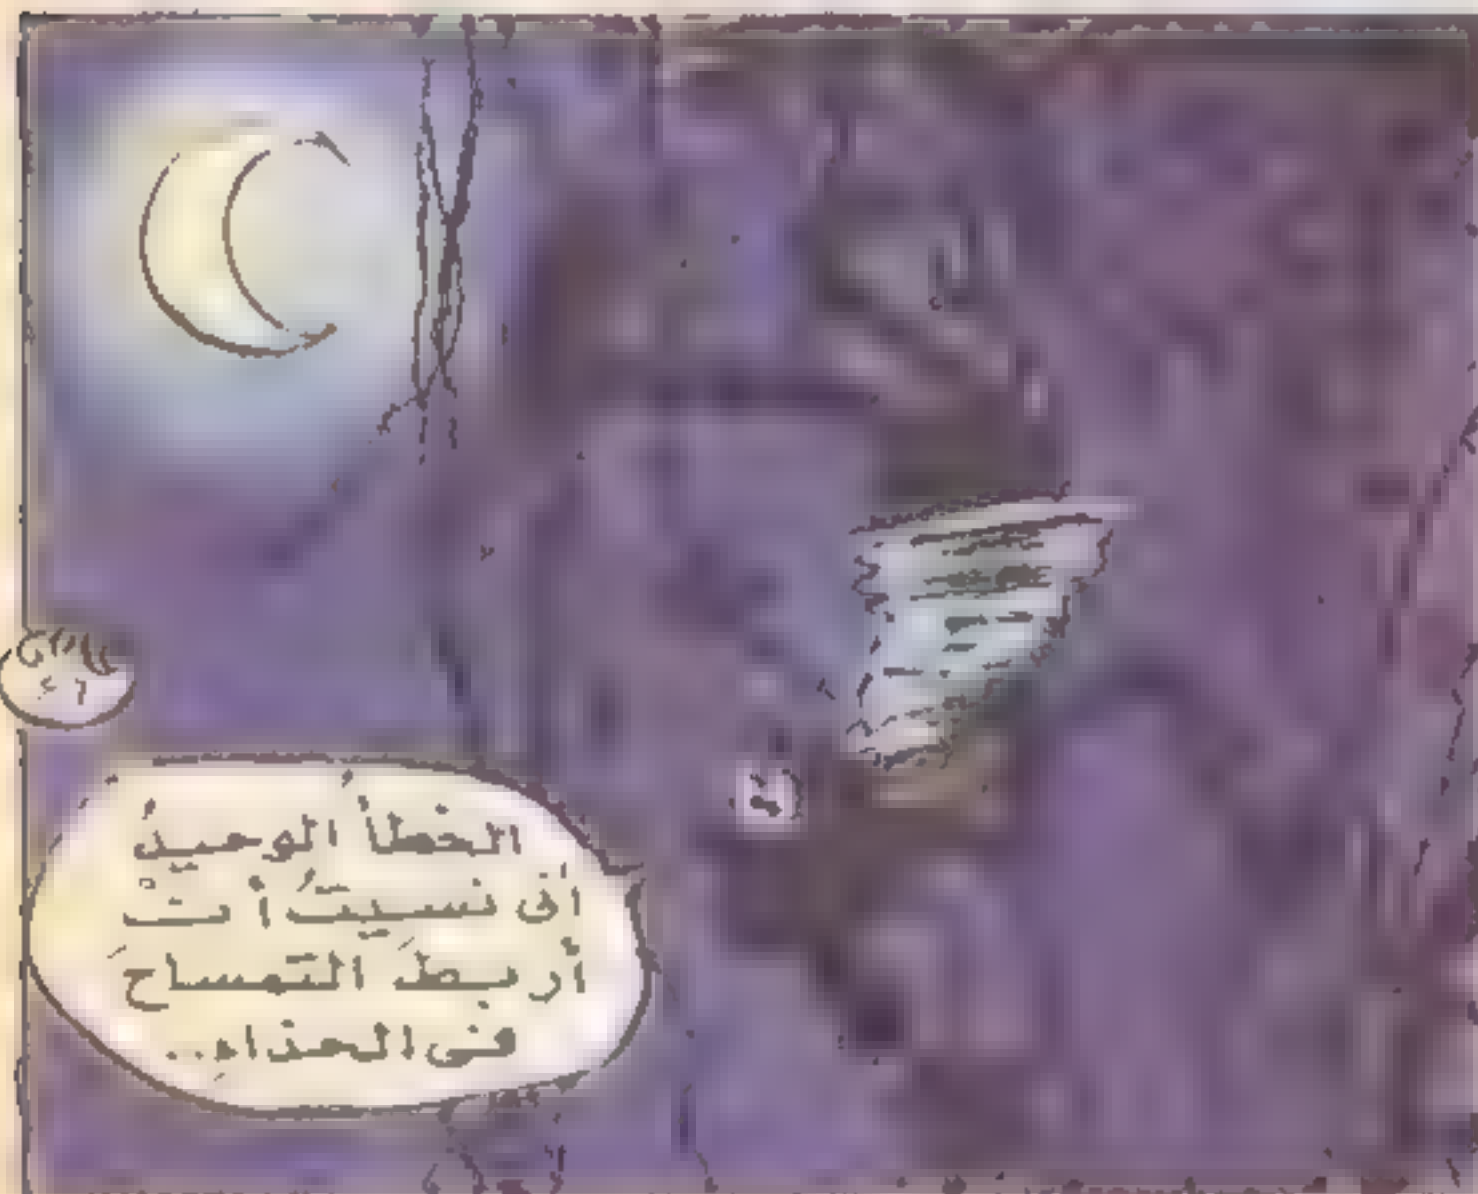 الخطأ الوحيدُ
أنى نسيتُ أنْ
أربطَ التمساحَ
فى الحذاءِ..